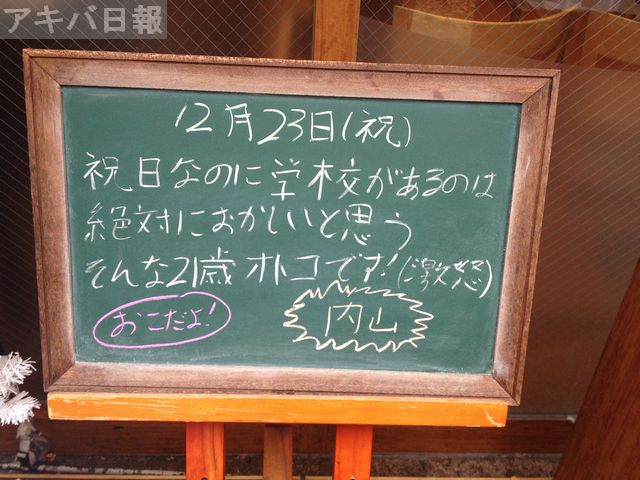 アキバ日報
12月23日(祝)
祝日なのに学校があるのは
絶対におかしいと思う
そんな21歳オトコです!(激怒)
おこだよ!
内山